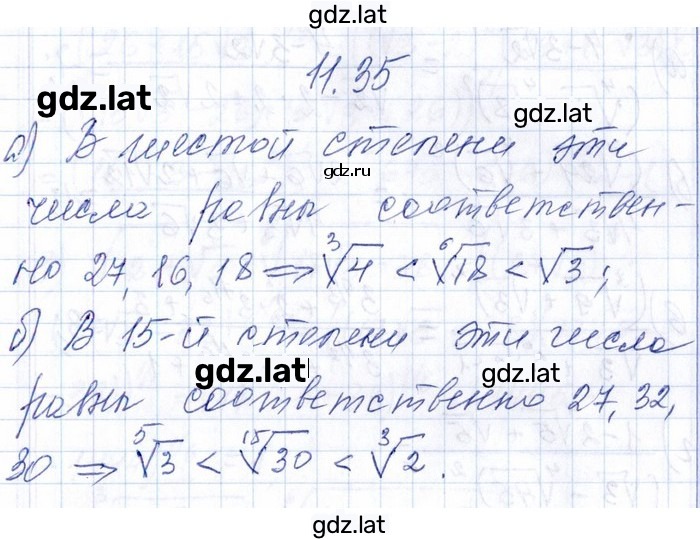 gdz.lat
11.35
gdz.lat
gdz.lat
а) В шестой степени эти
gdz.ru
числа равны соответствен-
gdz.lat
но 27, 16, 18 ⇒ ∛4 < ⁶√18 < √3;
б) В 15-й степени эти числа
gdz.lat
gdz.lat
равны соответственно 27, 32,
30 ⇒ ⁵√3 < ¹⁵√30 < ³√2.
gdz.lat